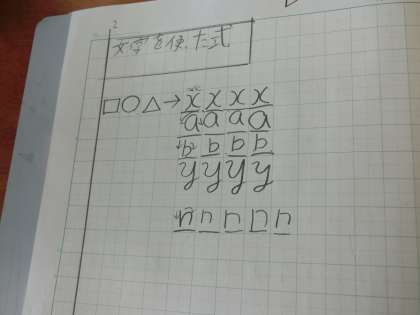 2
文字を使った式
□○△→x x x x
a a a a
b b b b
y y y y
n n n n n